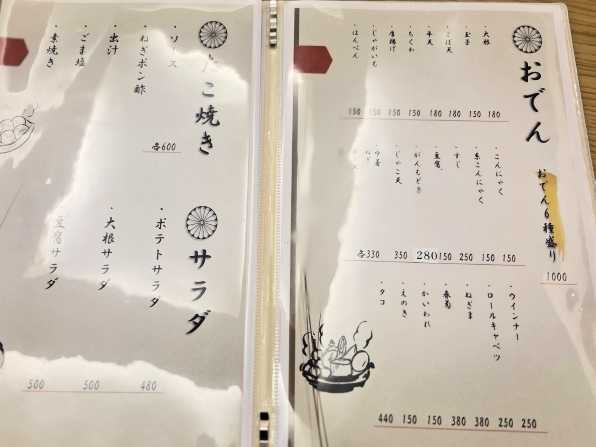 おでん
おでん6種盛り
1000
・大根
・玉子
・ごぼ天
・平天
・厚揚げ
・ちくわ
・じゃがいも
・はんぺん
150 150 150 150 180 180 150 180
・こんにゃく
・糸こんにゃく
・すじ
・豆腐
・がんもどき
・じゃこ天
・巾着
各330 350 280 150 250 150 150
・ウインナー
・ロールキャベツ
・ねぎま
・春菊
・かいわれ
・えのき
・タコ
440 150 150 380 380 250 250
たこ焼き
・ソース
・ねぎポン酢
・出汁
・ごま塩
・素焼き
各600
サラダ
・ポテトサラダ
・大根サラダ
・豆腐サラダ
500 500 480